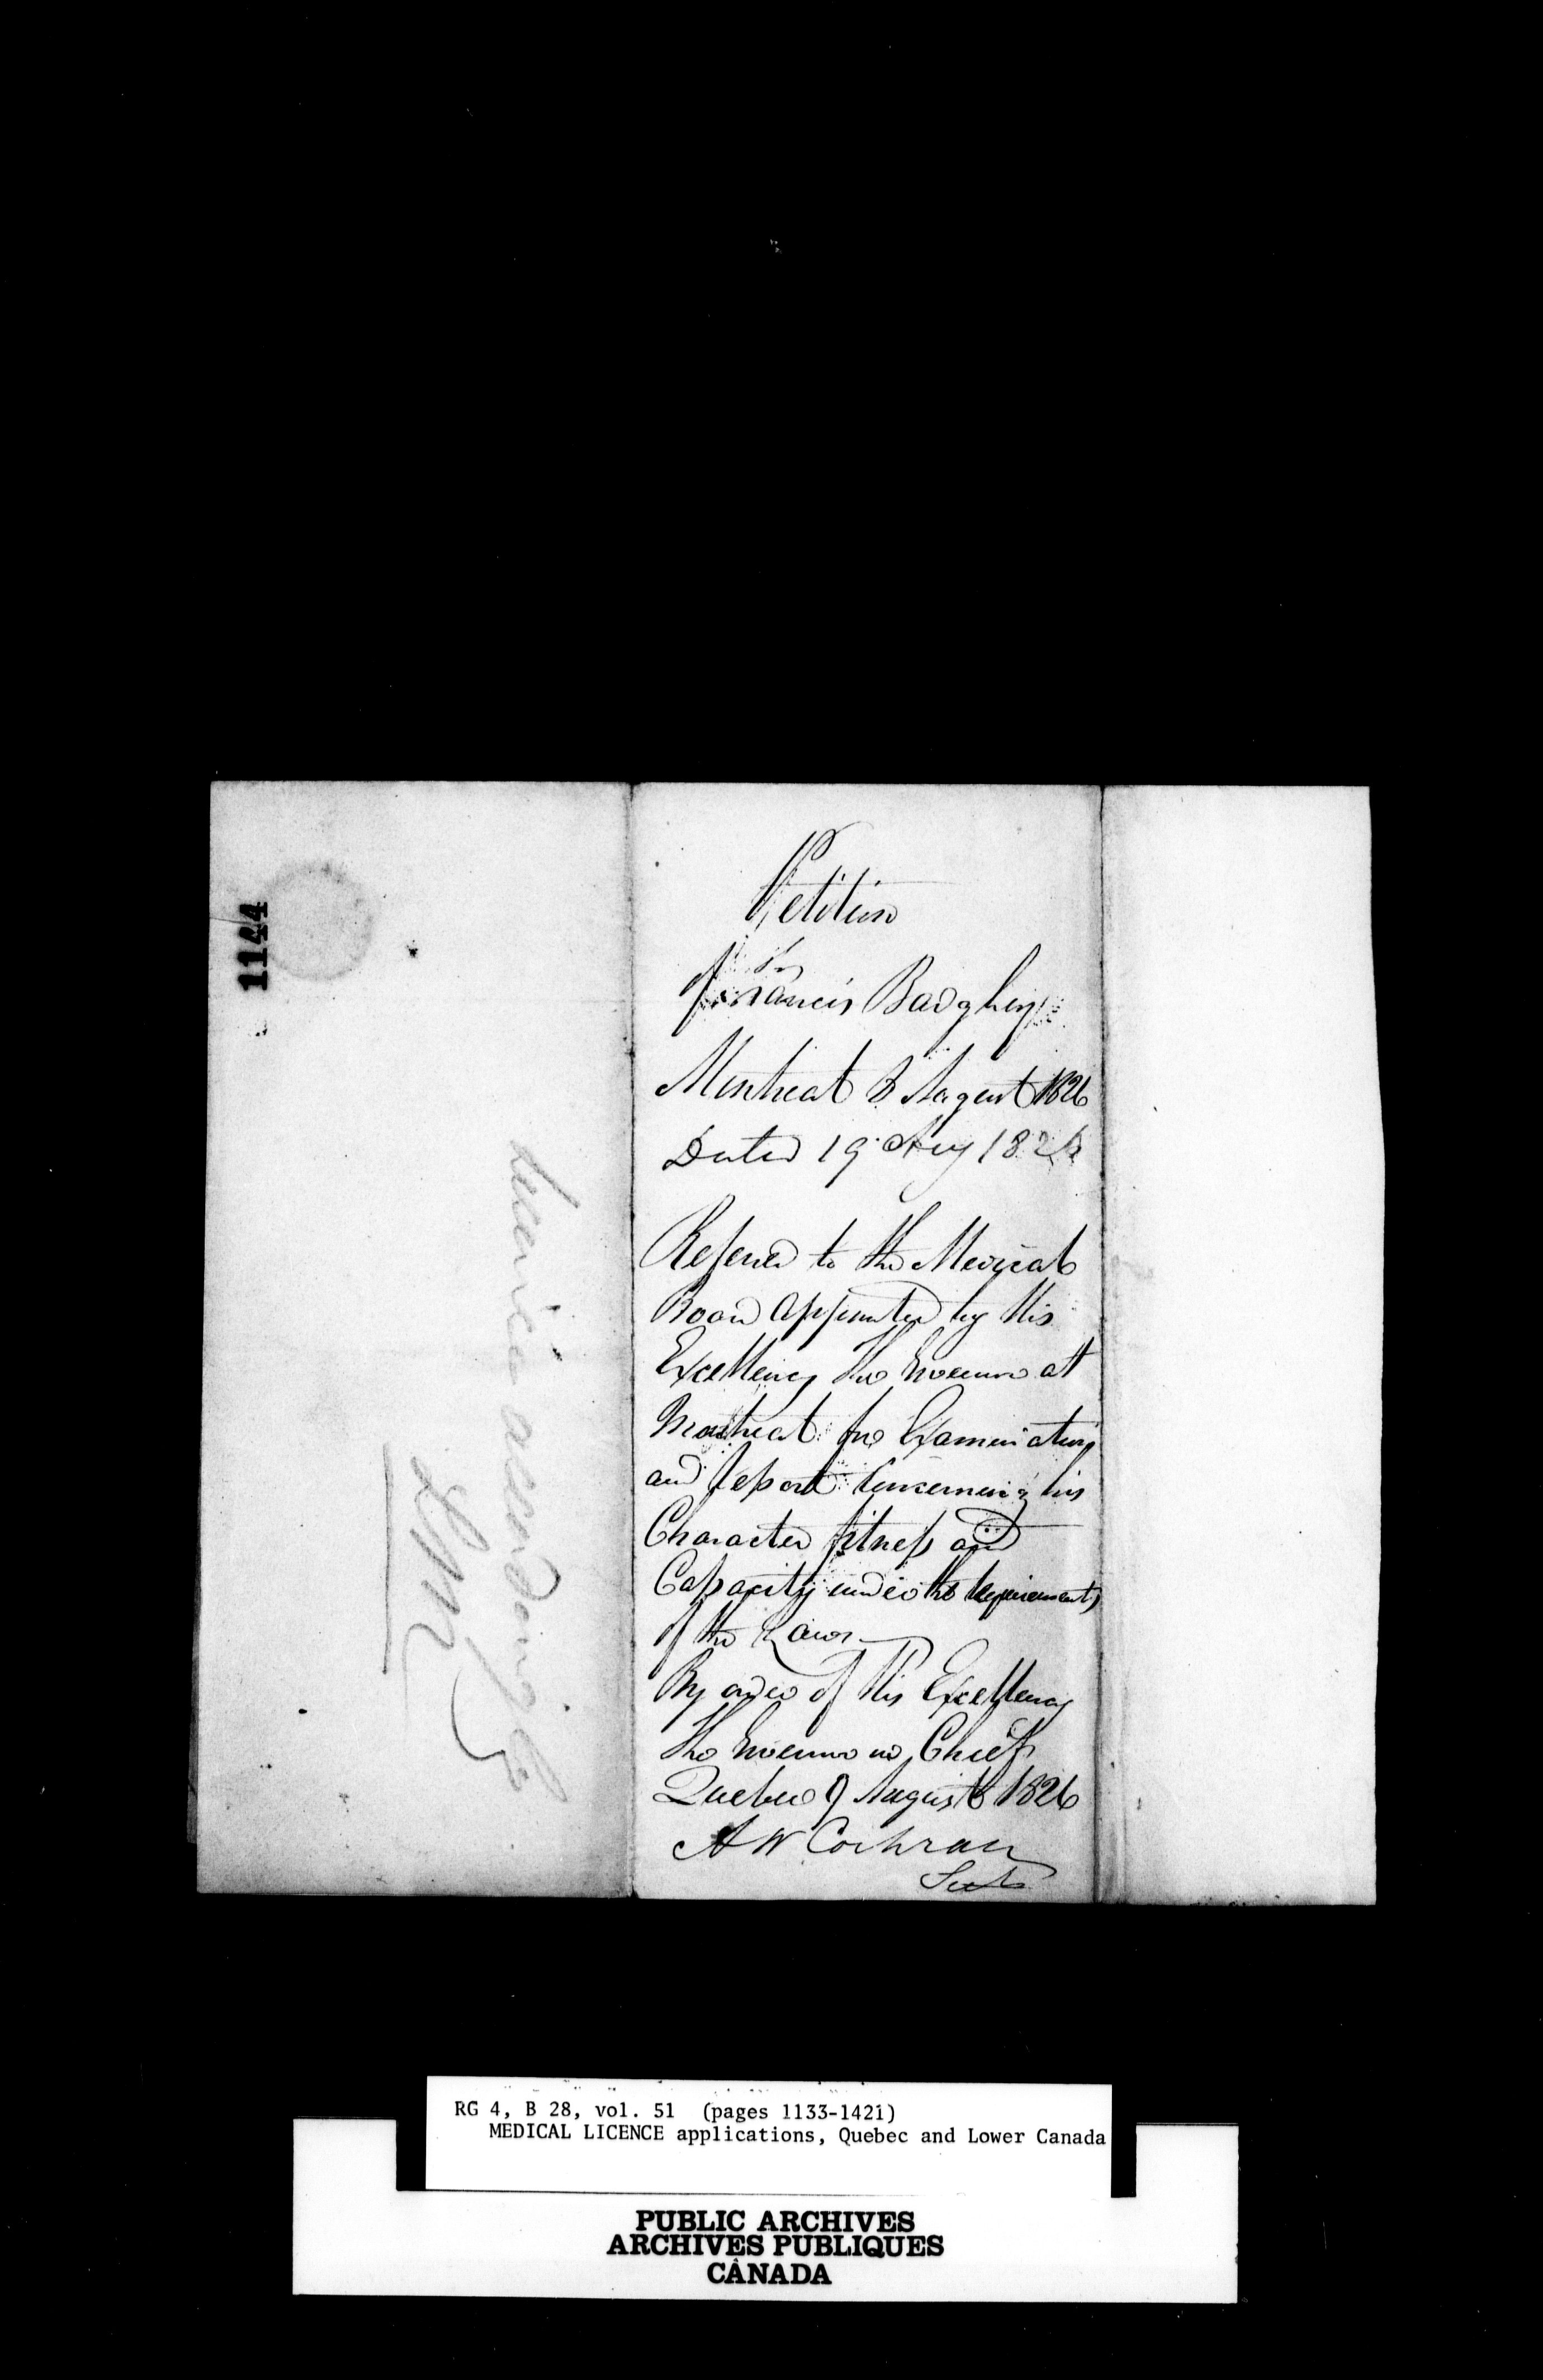 1144
Licence accordingly
Petition
for
Francis Badgley
Montreal 8 August 1826
Dated 19 Aug 1826
Referred to the Medical
Board appointed by His
Excellency The Governor at
Montreal for Examination
and Report Concerning his
Character fitness and
Capacity under the requirements
of the Laws
By order of His Excellency
The Governor in Chief
Quebec 9 August 1826
A W Cochran
Secy
RG 4, B 28, vol. 51 (pages 1133-1421)
MEDICAL LICENCE applications, Quebec and Lower Canada
PUBLIC ARCHIVES
ARCHIVES PUBLIQUES
CANADA